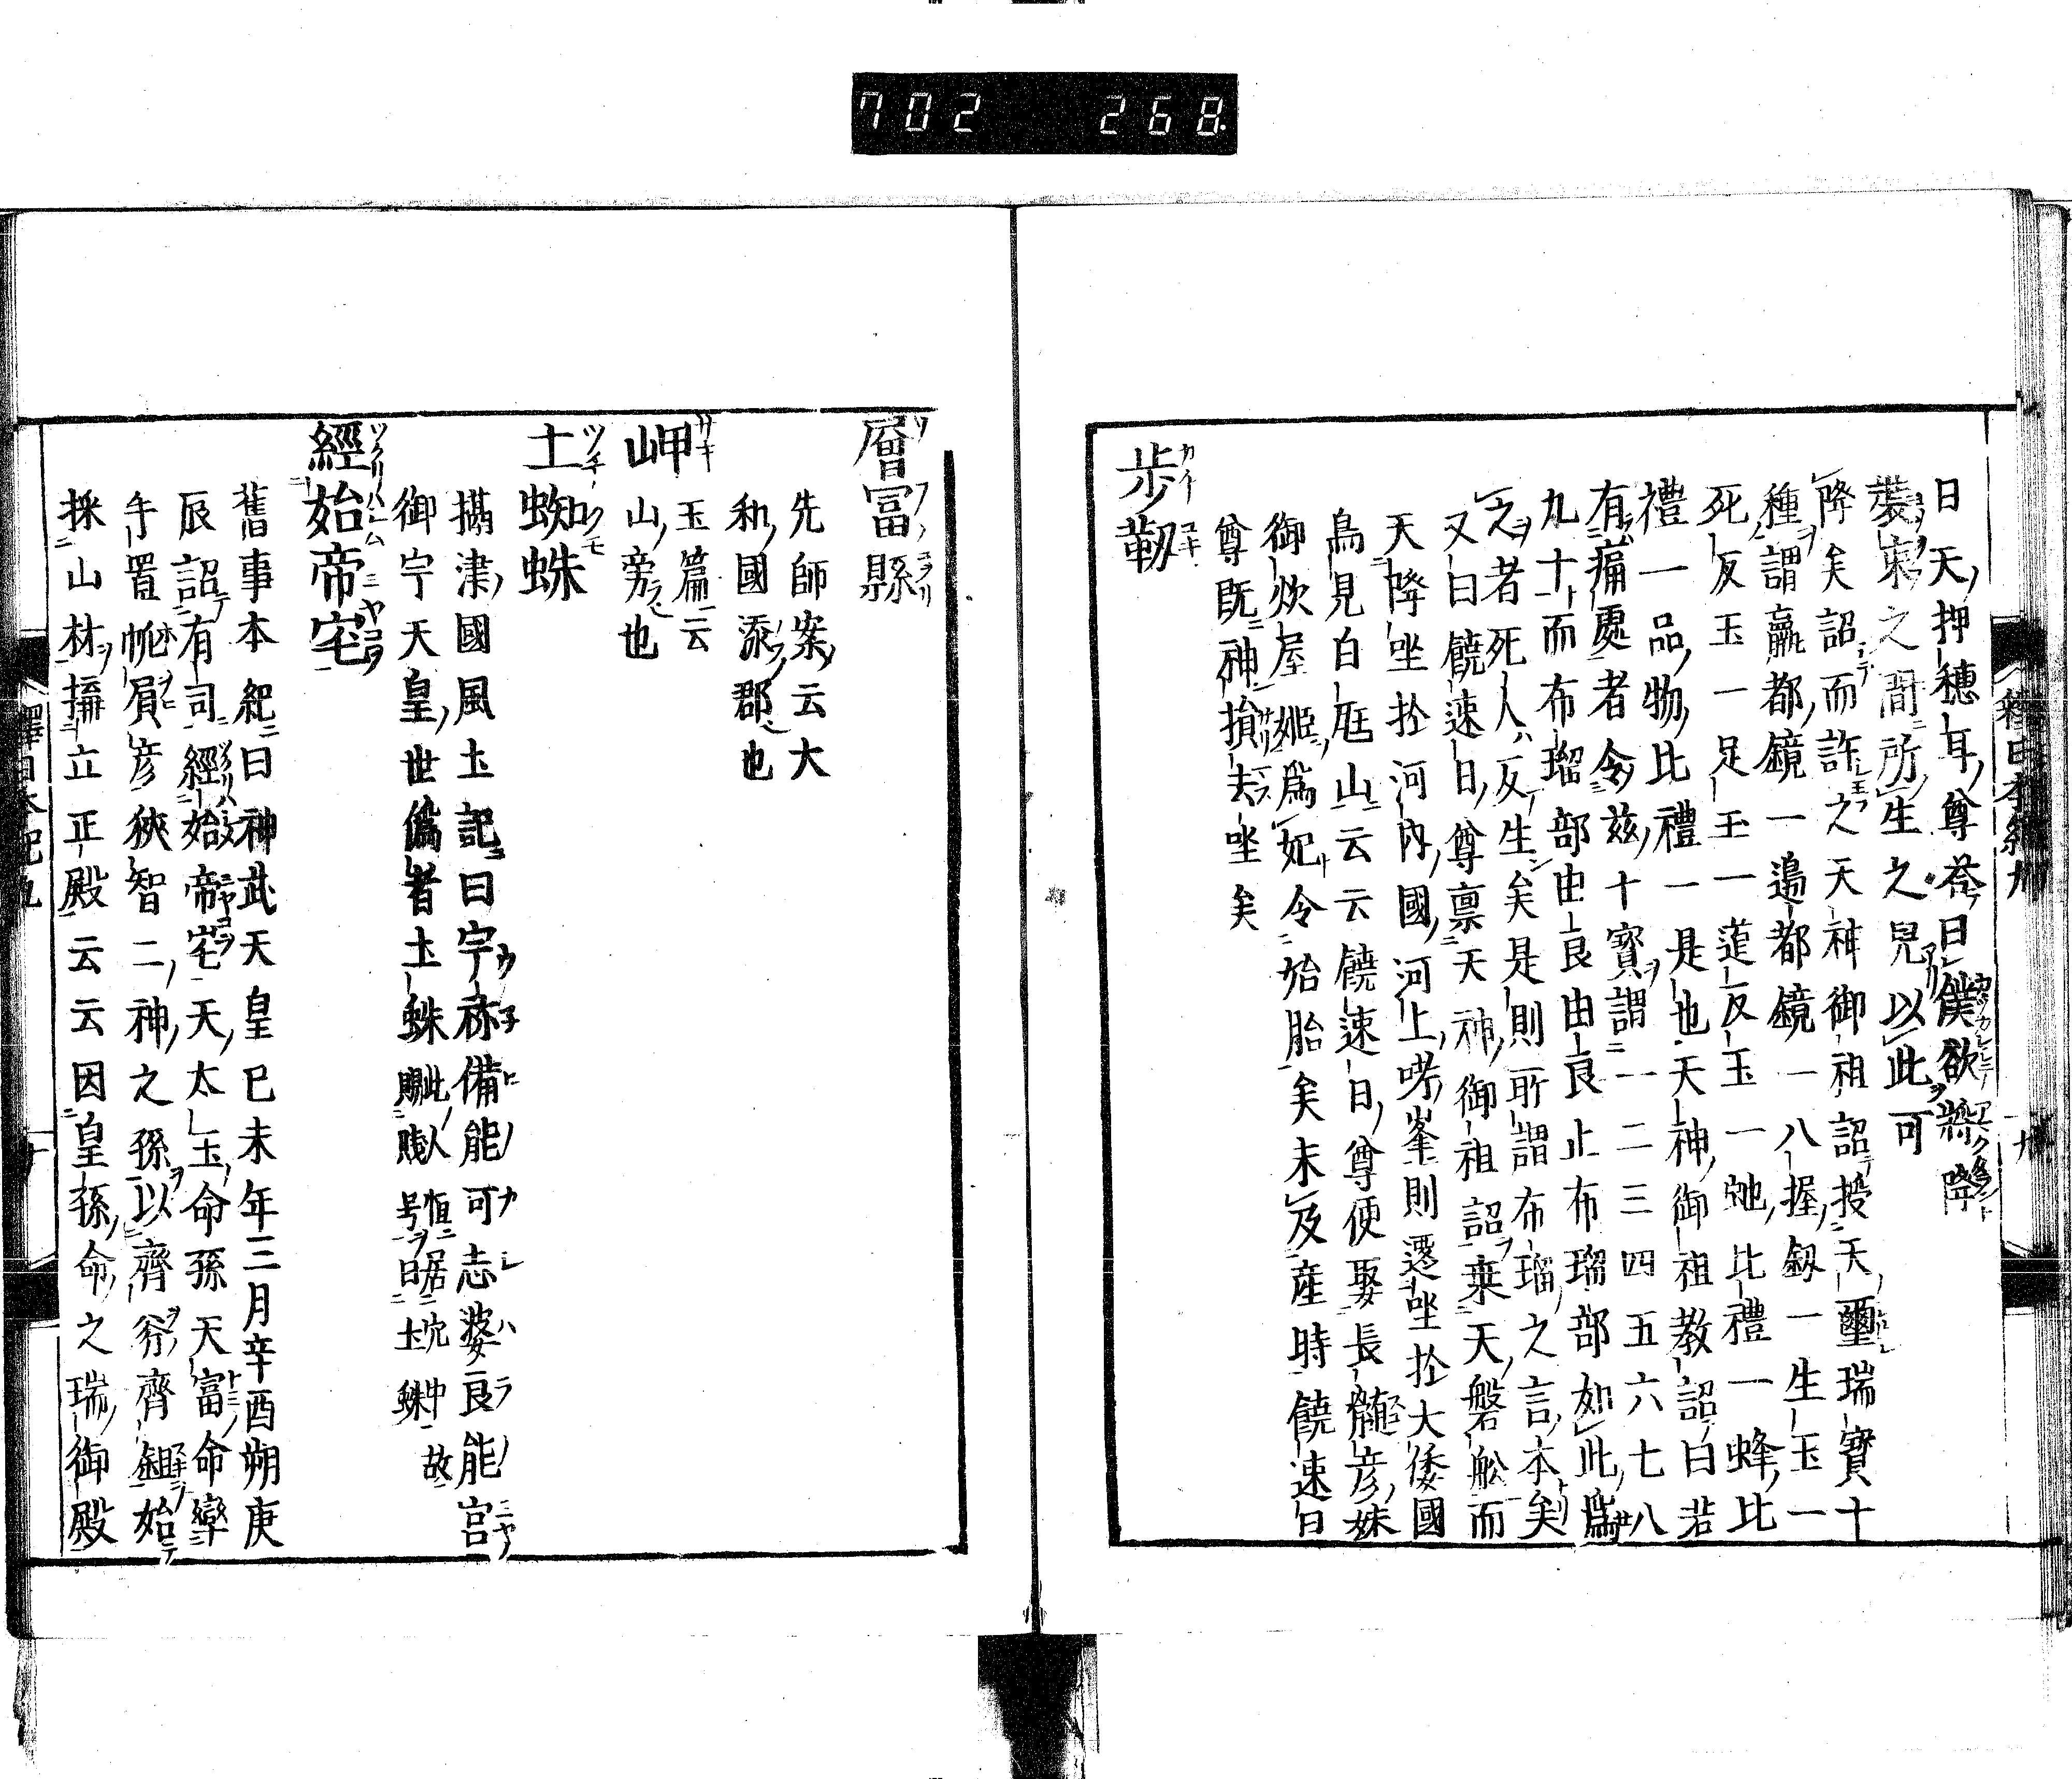 702 268
日天押穗耳尊荅曰僕欲將降
裝束之間所生之兒以此可
降矣詔而許之天神御祖詔授天璽瑞寶十
種謂瀛都鏡一邉都鏡一八握劔一生玉一
死反玉一足玉一道反玉一虵比禮一蜂比
禮一品物比禮一是也天神御祖教詔曰若
有痛處者令兹十寶謂一二三四五六七八
九十而布瑠部由良由良止布瑠部如此爲
之者死人反生矣是則所謂布瑠之言本矣
又曰饒速日尊禀天神御祖詔乗天磐舩而
天降坐於河内國河上哮峯則遷坐於大倭國
鳥見白庭山云云饒速日尊便娶長髄彦妹
御炊屋姬爲妃令始胎矣未及産時饒速日
尊旣神損去坐矣
歩靫
層冨縣
先師案云大
和國添郡也
岬
玉篇云
山旁也
土蜘蛛
攝津國風土記曰宇祢備能可志婆良能宫
御宇天皇世僞者土蛛此人恒居穴中故賜賤号曰土蛛
經始帝宅
舊事本紀曰神武天皇巳未年三月辛酉朔庚
辰詔有司經始帝宅天太玉命孫天富命率
手置帆負彦狹智二神之孫以齊斧齊鉏始
採山材搆立正殿云云因皇孫命之瑞御殿